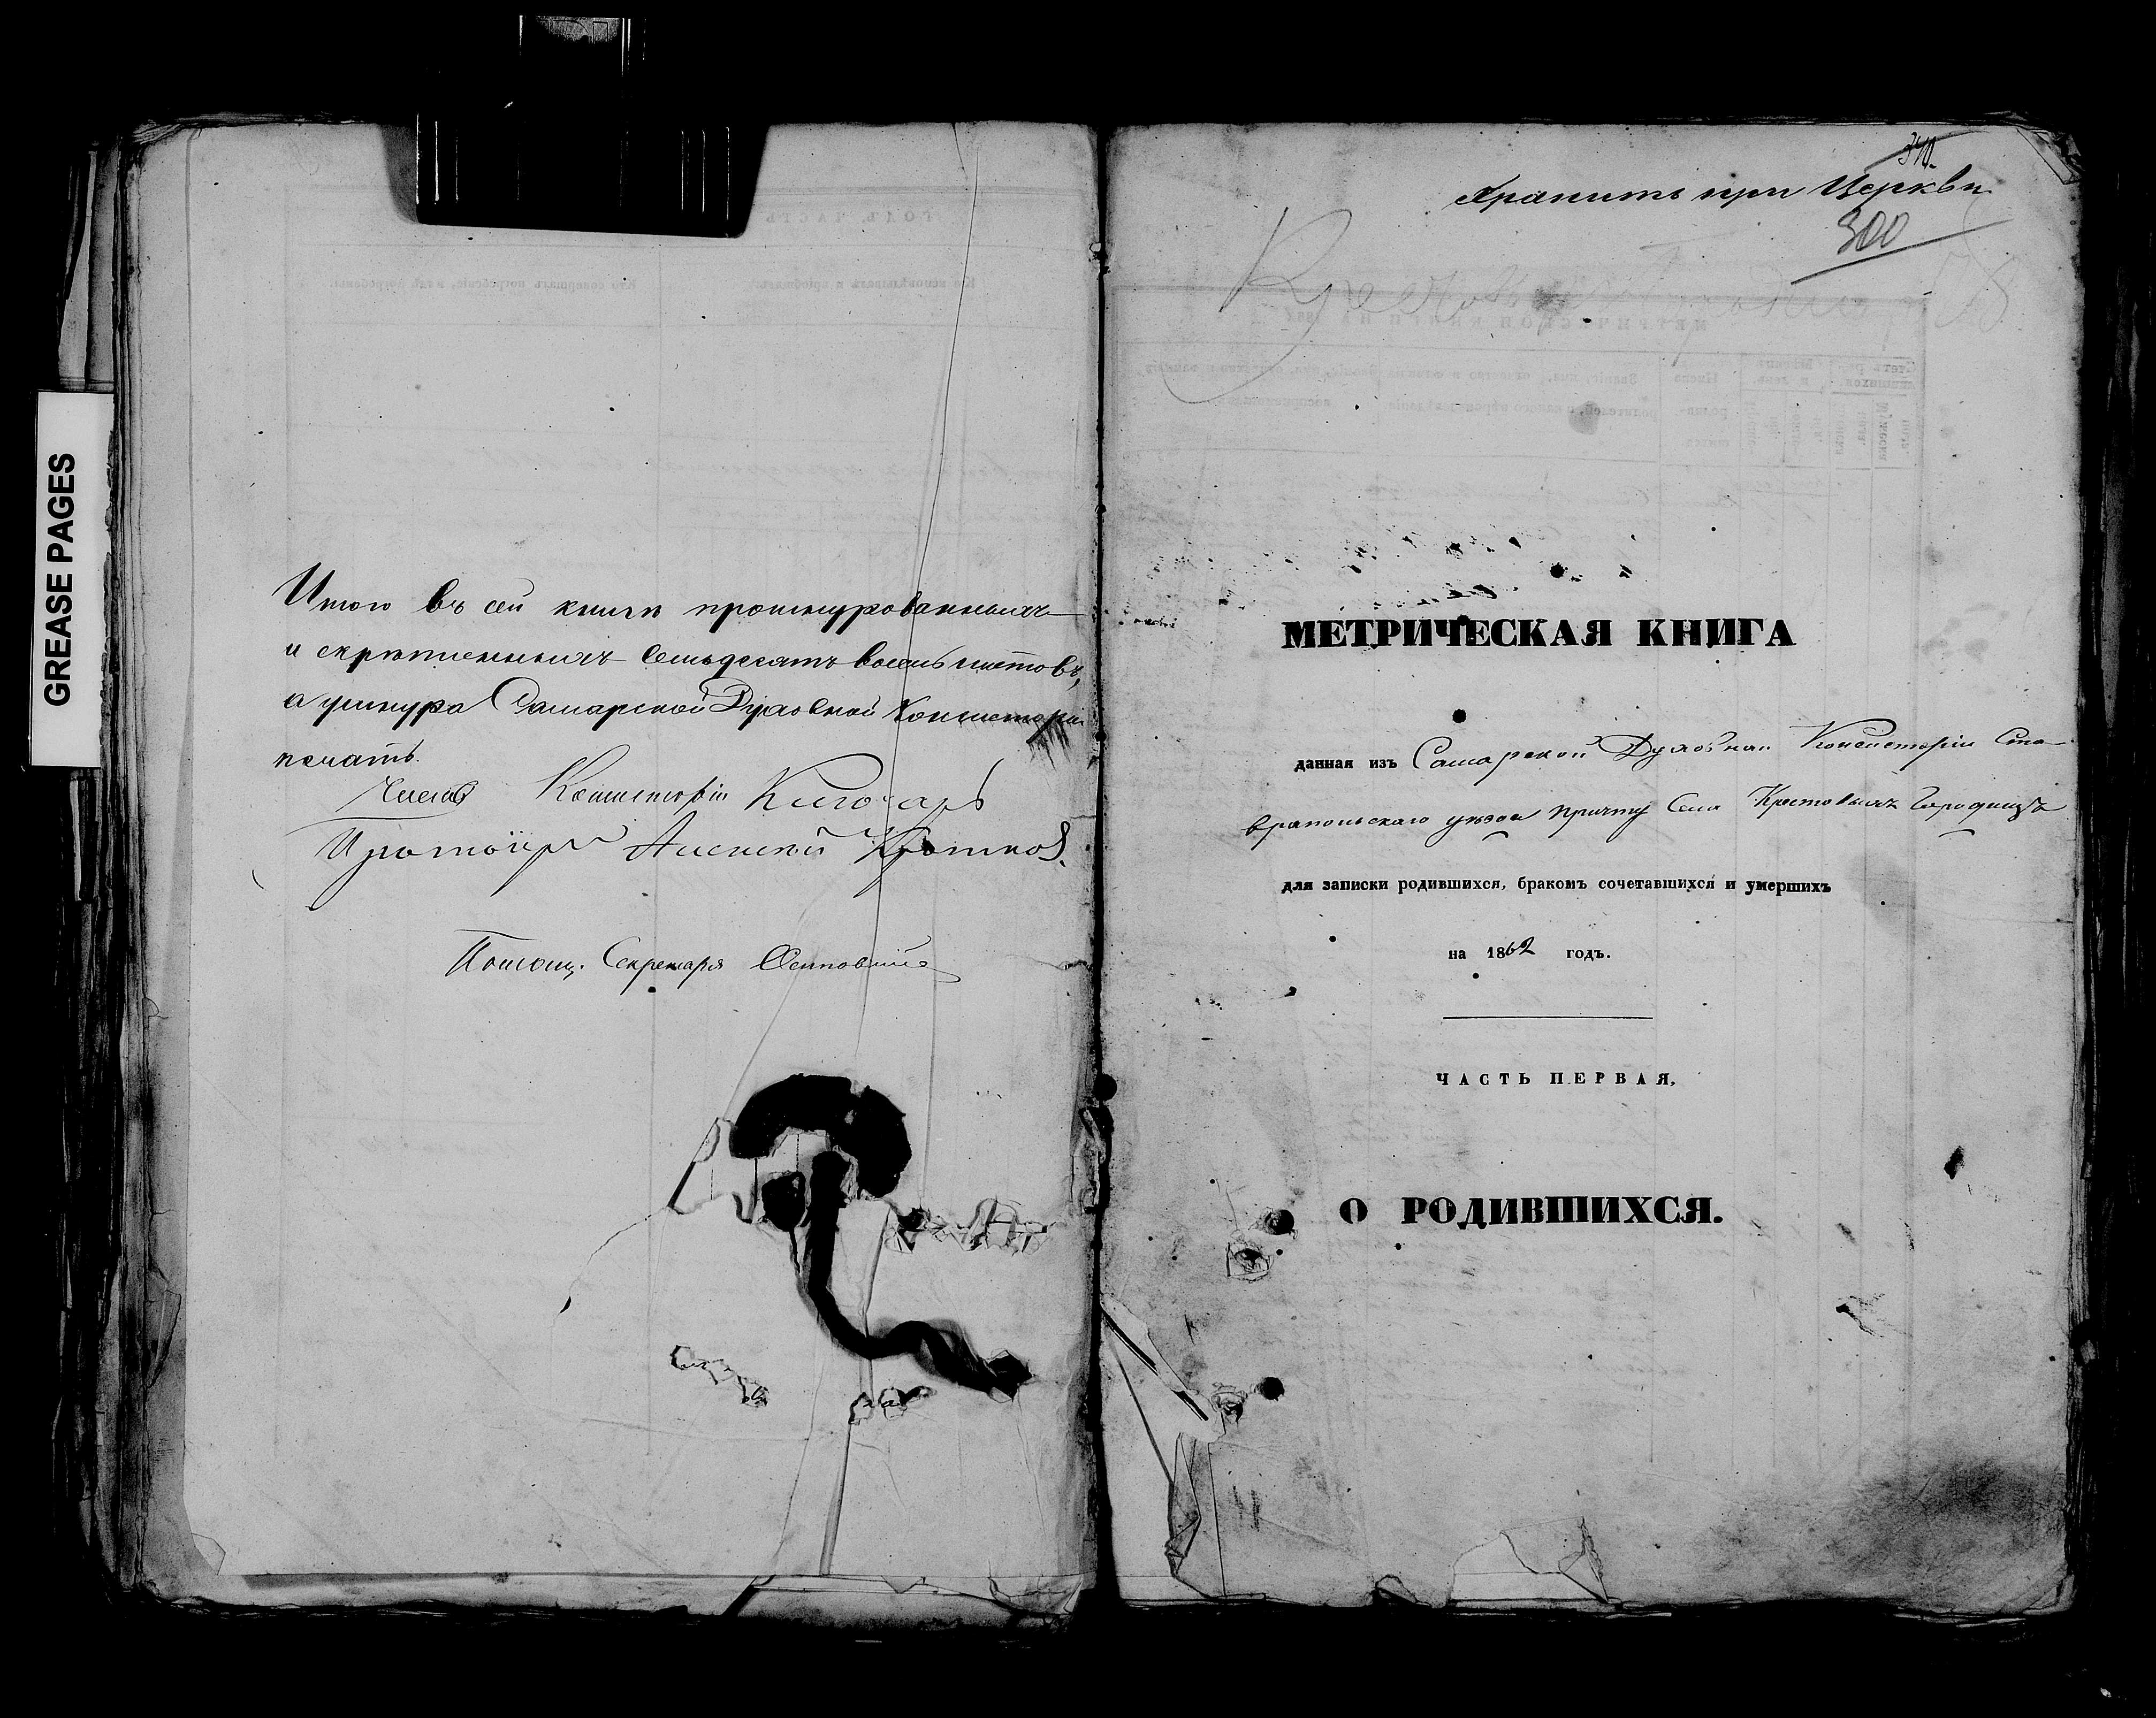 GREASE PAGES
Итого въ сей книгѣ прошнурованныхъ
и скрѣпленныхъ семьдесятъ восемь листовъ,
а у шнура Самарской Духовной Консисторіи
печать.
Членъ Консисторіи
Протоіерей Алексѣй
Помощ. Секретаря
340.
Хранить при Церкви
300
МЕТРИЧЕСКАЯ КНИГА
данная изъ Самарской Духовной Консисторіи Ста
вропольскаго уѣзда причту села Крестовыхъ Городищъ
для записки родившихся, бракомъ сочетавшихся и умершихъ
на 1862 годъ.
ЧАСТЬ ПЕРВАЯ,
О РОДИВШИХСЯ.